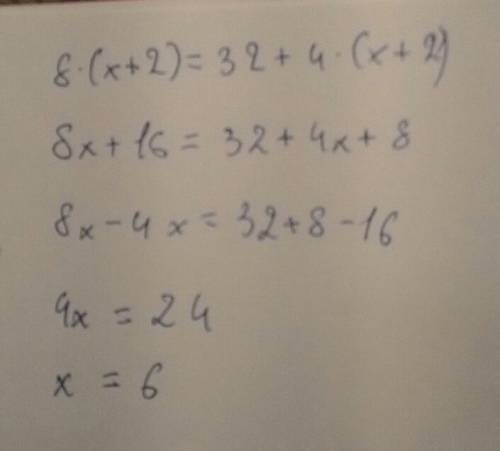 8·(x+2)=32+4·(x+2)
8x+16=32+4x+8
8x-4x=32+8-16
4x=24
x=6